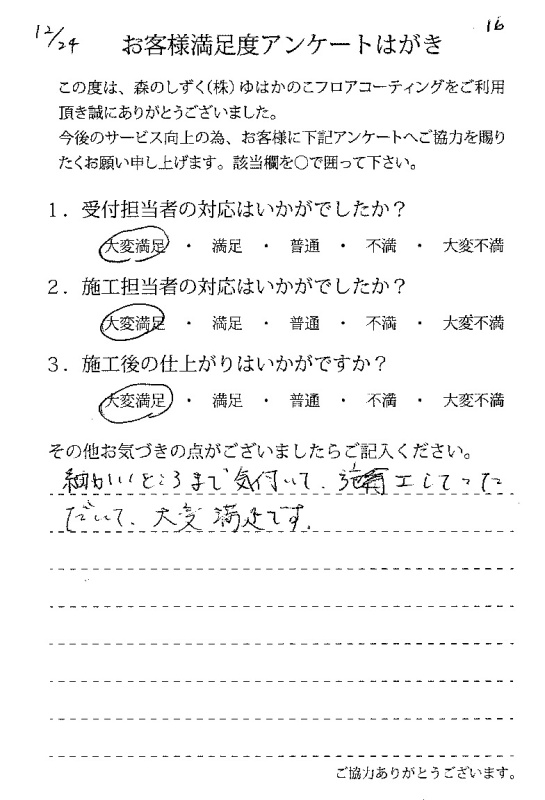 12/24
16
お客様満足度アンケートはがき
この度は、森のしずく(株)ゆはかのこフロアコーティングをご利用
頂き誠にありがとうございました。
今後のサービス向上の為、お客様に下記アンケートへご協力を賜り
たくお願い申し上げます。該当欄を○で囲って下さい。
1．受付担当者の対応はいかがでしたか？
大変満足 ・ 満足 ・ 普通 ・ 不満 ・ 大変不満
2．施工担当者の対応はいかがでしたか？
大変満足 ・ 満足 ・ 普通 ・ 不満 ・ 大変不満
3．施工後の仕上がりはいかがですか？
大変満足 ・ 満足 ・ 普通 ・ 不満 ・ 大変不満
その他お気づきの点がございましたらご記入ください。
細かいところまで気付いて、施工していた
だいて、大変満足です。
ご協力ありがとうございます。